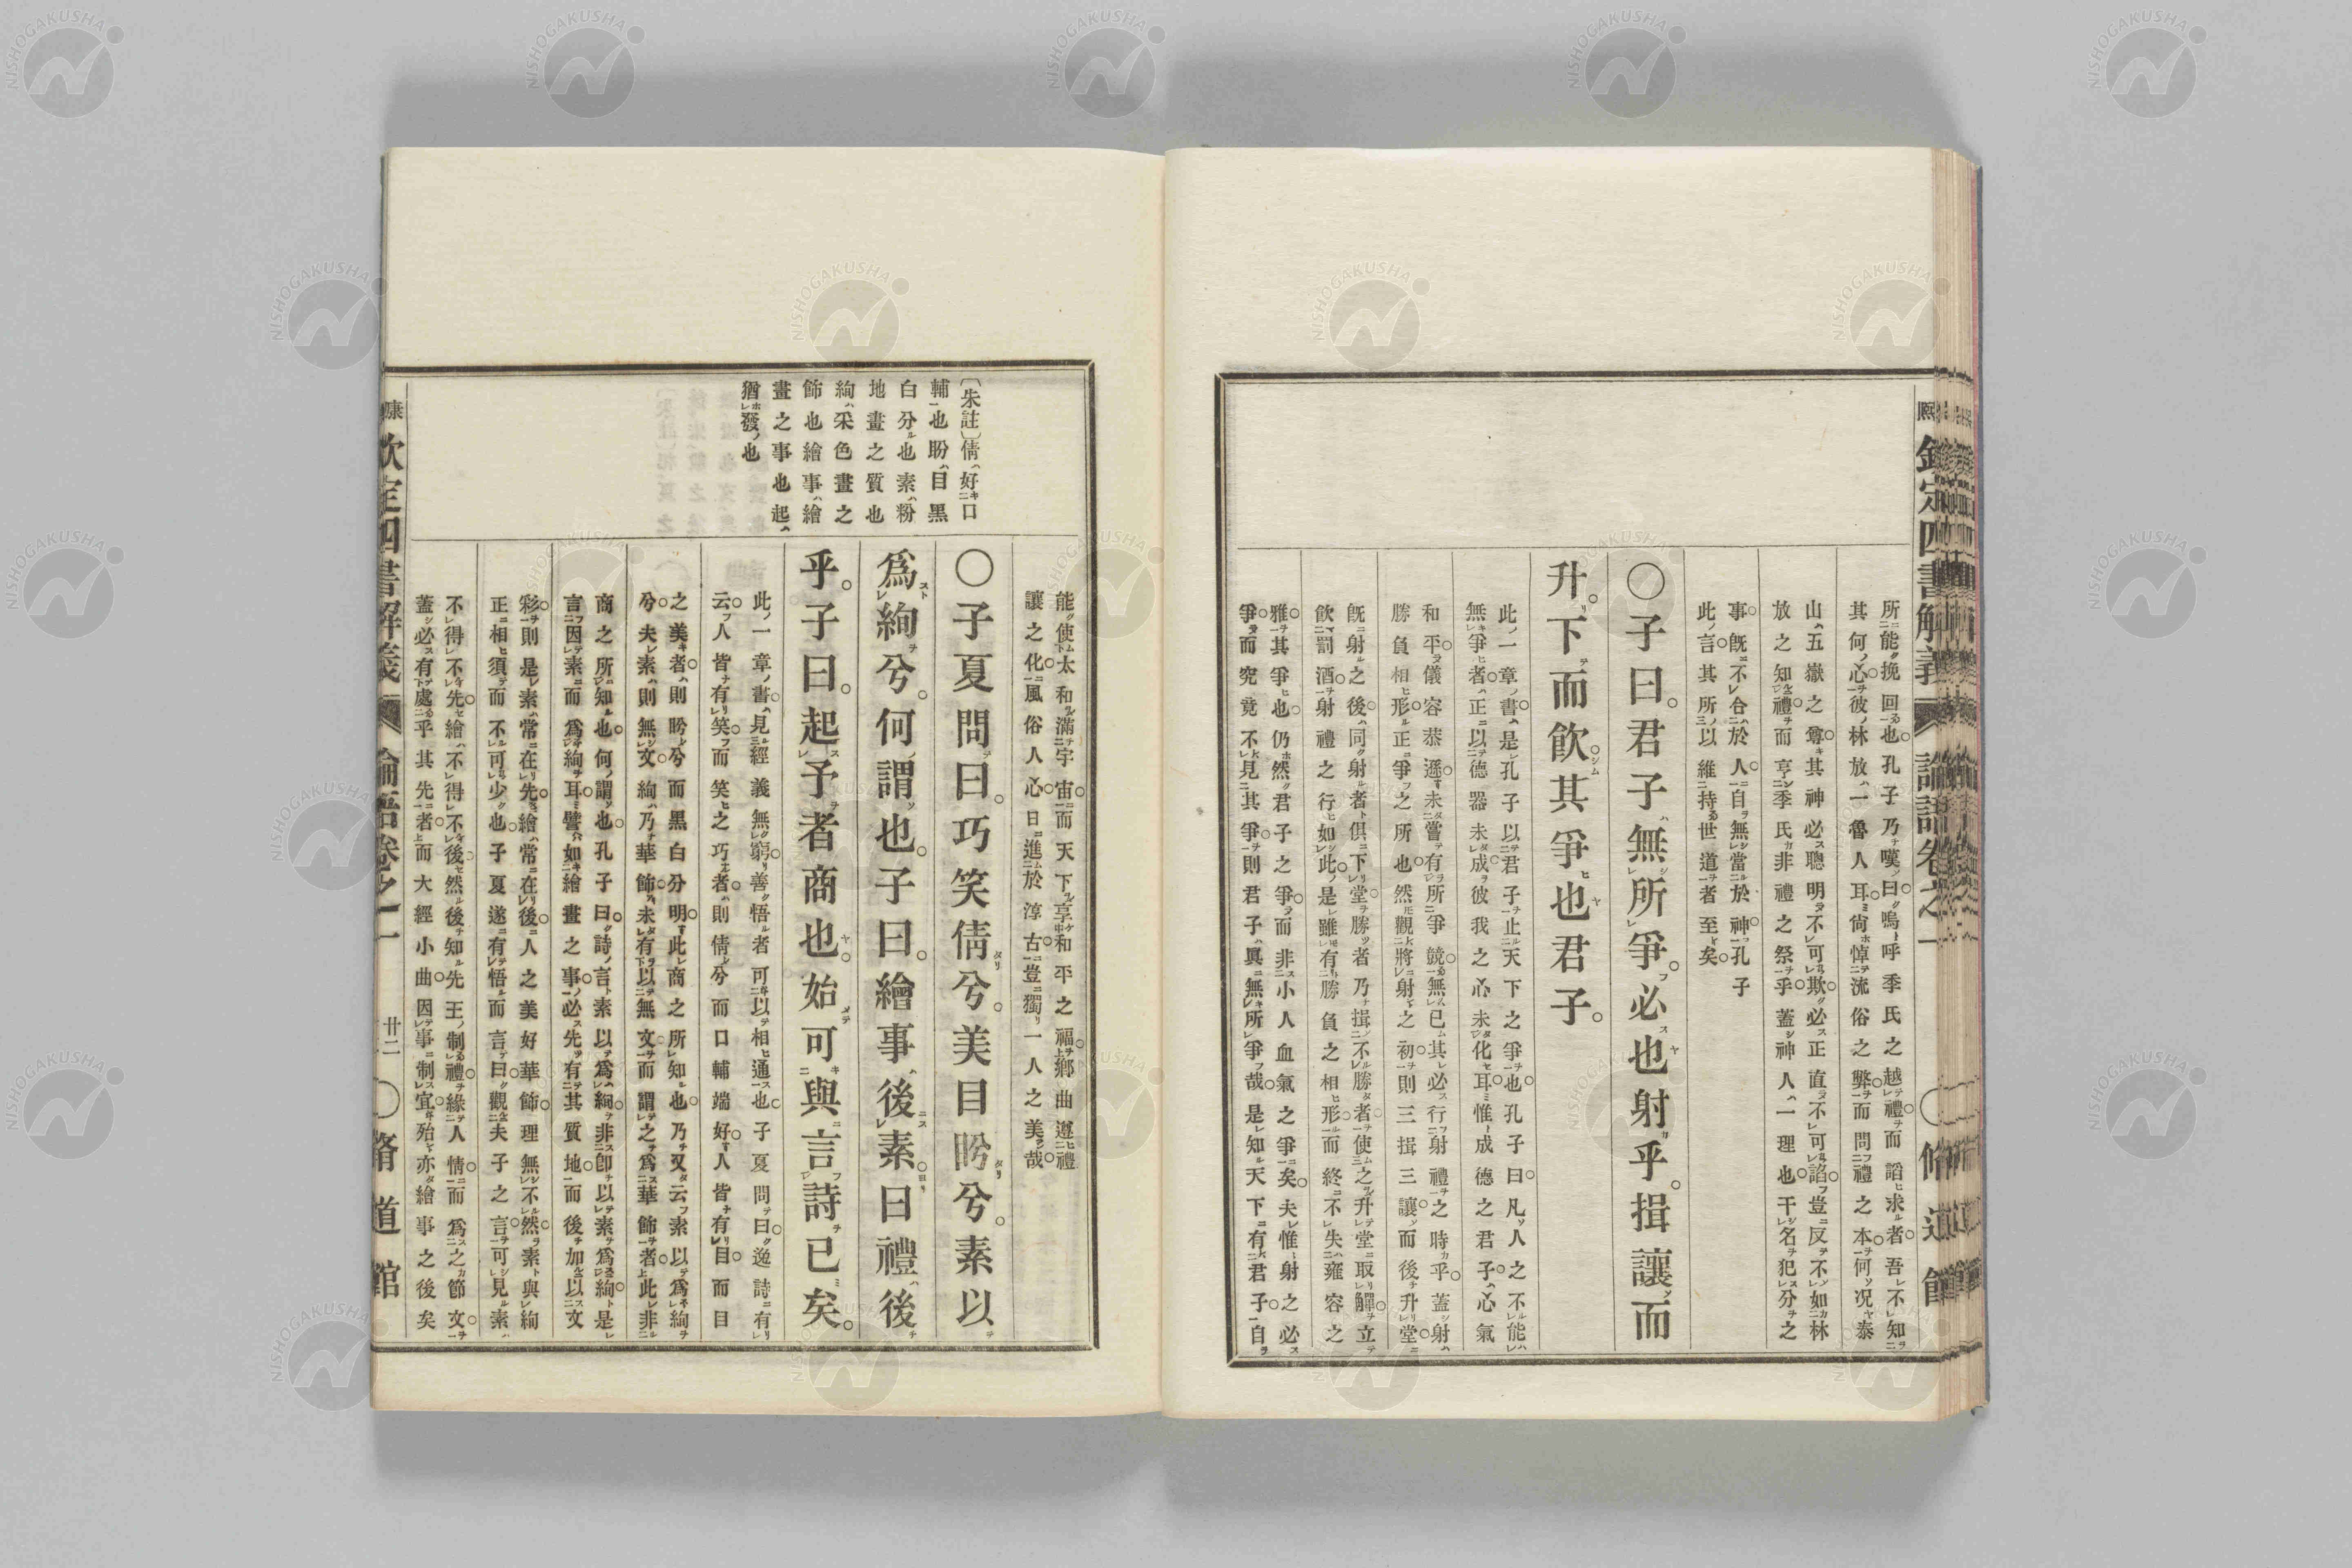 所能挽回也。孔子乃嘆曰。嗚呼季氏之越禮。而謟求者。吾不知
其何心。彼林放一魯人耳。尙悼流俗之弊。而問禮之本。何况泰
山五嶽之尊。其神必聰明不可欺。必正直不可謟。豈反不如林
放之知禮。而亨季氏非禮之祭乎。蓋神人一理也。干名犯分之
事。旣不合於人。自無當於神。孔子
此言。其所以維持世道者至矣。
○子曰。君子無所爭。必也射乎。揖讓而
升。下而飮。其爭也君子。
此一章書。是孔子以君子止天下之爭也。孔子曰。凡人之不能
無爭者。正以德器未成。彼我之心未化耳。惟成德之君子。心氣
和平。儀容恭遜。未嘗有所爭競。無已其必行射禮之時乎。蓋射
勝負相形。正爭之所也。然觀將射之初。則三揖三讓。而後升堂。
旣射之後。同射者俱下堂。勝者乃揖不勝者。使之升堂取觶。立
飮罰酒。射禮之行如此。是雖有勝負之相形。而終不失雍容之
雅。其爭也。仍然君子之爭。而非小人血氣之爭矣。夫惟射之必
爭。而究竟不見其爭。則君子眞無所爭哉。是知天下有君子。自
熙
欽定四書解義
論語卷之一
○脩道館
能使太和滿宇宙。而天下享和平之福。鄉曲遵禮
讓之化。風俗人心。日進於淳古。豈獨一人之美哉。
○子夏問曰。巧笑倩兮。美目盻兮。素以
爲絢兮。何謂也。子曰。繪事後素。曰禮後
乎。子曰。起予者商也。始可與言詩已矣。
〔朱註〕倩好口
輔也盼目黑
白分也素粉
地畫之質也
絢采色畫之
飾也繪事繪
畫之事也起
猶發也
此一章書。見經義無窮。善悟者可以相通也。子夏問曰。逸詩有
云。人皆有笑。而笑之巧者。則倩兮而口輔端好。人皆有目。而目
之美者。則盻兮而黑白分明。此商之所知也。乃又云素以爲絢
兮。夫素則無文。絢乃華飾。未有以無文而謂之爲華飾者。此非
商之所知也。何謂也。孔子曰。詩言素以爲絢。非卽以素爲絢。是
言因素而爲絢耳。譬如繪畫之事。必先有其質地。而後加以文
彩。則是素常在先。繪常在後。人之美好華飾。理無不然。素與絢
正相須而不可少也。子夏遂有悟而言曰。觀夫子之言。可見素
不得不先。繪不得不後。然後知先王制禮。緣人情。而爲之節文。
蓋必有處乎其先者。而大經小曲。因事制宜。殆亦繪事之後矣
康
欽定四書解義
論語卷之一
廿二
○脩道館